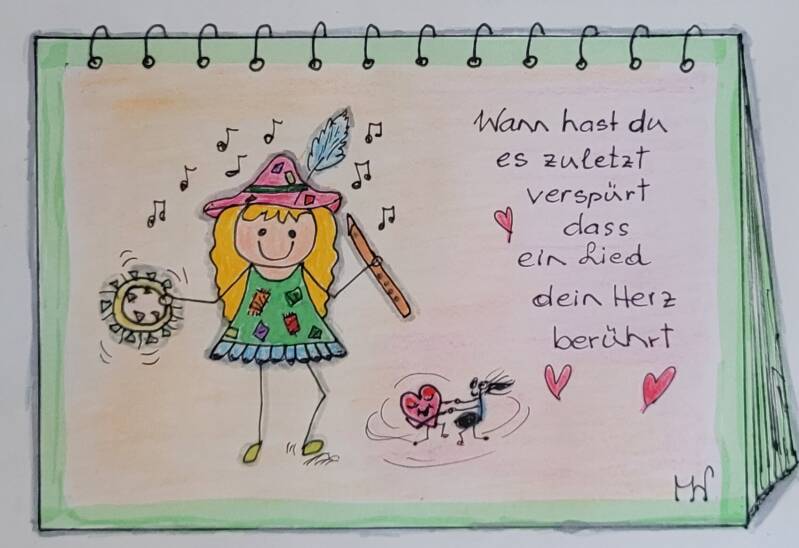 Wann hast du
es zuletzt
verspürt
dass
ein Lied
dein Herz
berührt
MW